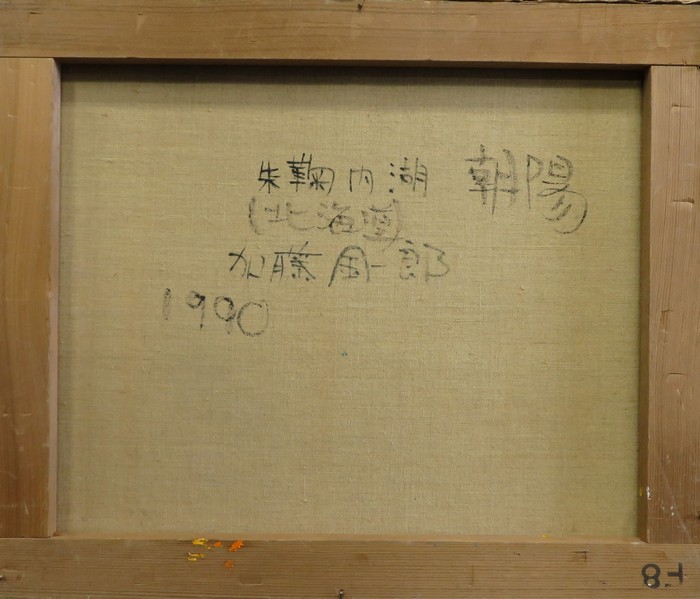 朱鞠内湖 朝陽
(北海道)
加藤金一郎
1990
F8